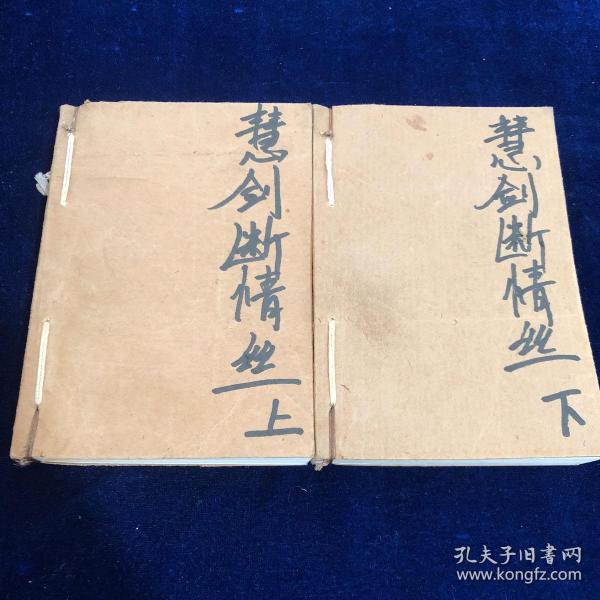 慧剑断情丝
上
慧剑断情丝
下
孔夫子旧书网
www.kongfz.com